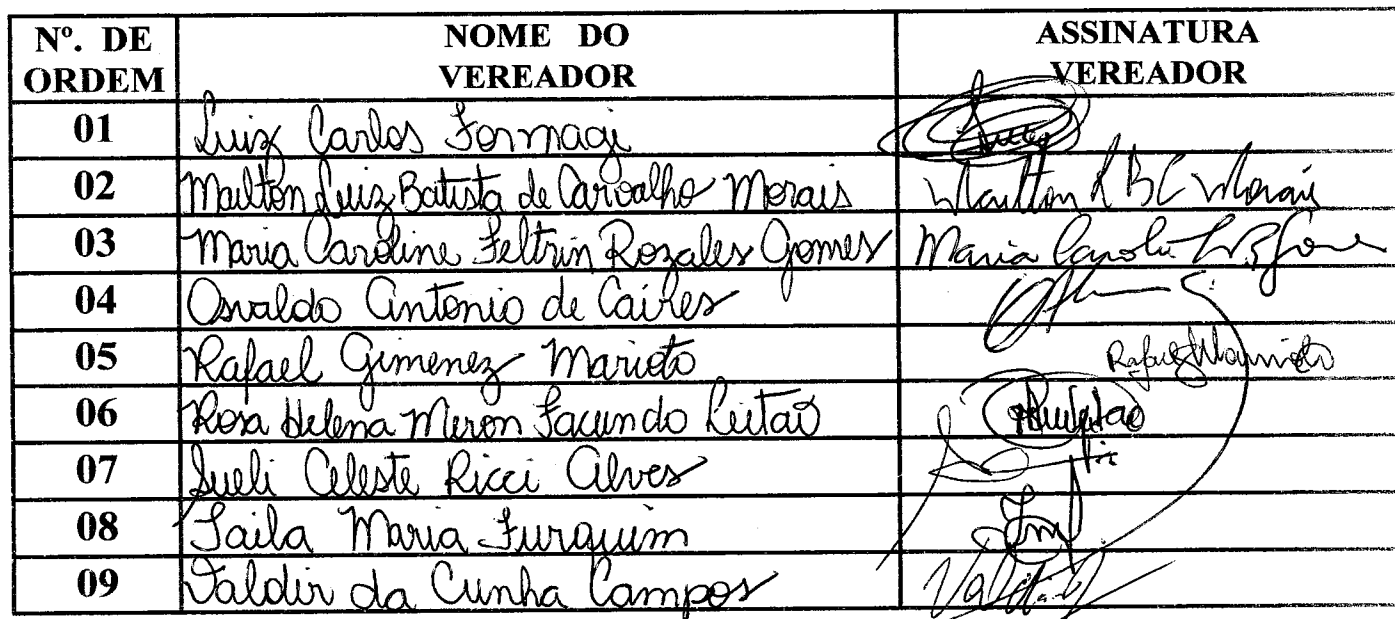 Nº. DE ORDEM NOME DO VEREADOR ASSINATURA VEREADOR
01 Luiz Carlos Formagi
02 Mailton Luiz Batista de Carvalho Morais Mailton L B C Morais
03 Maria Caroline Feltrin Rozales Gomes Maria
04 Osvaldo Antonio de Caires
05 Rafael Gimenez Marioto Rafael Marioto
06 Rosa Helena Meron Facundo Leitão
07 Sueli Celeste Ricci Alves
08 Taila Maria Furquim
09 Valdir da Cunha Campos